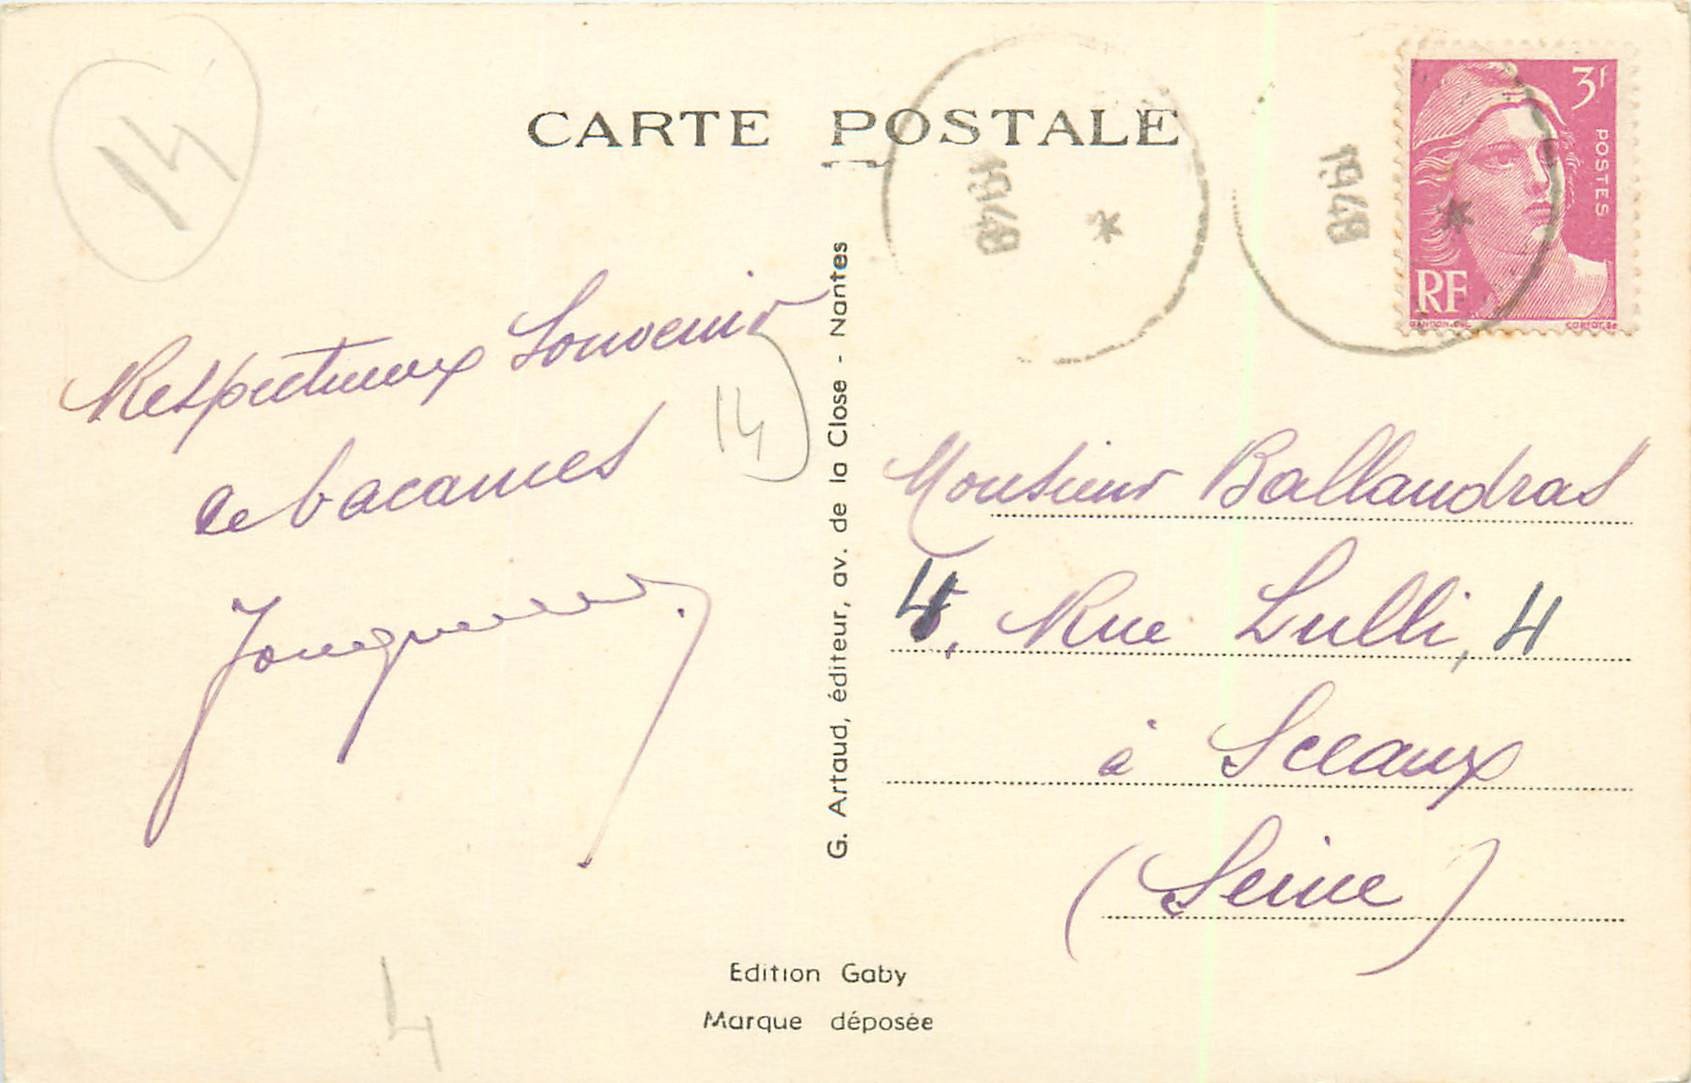 14
CARTE POSTALE
1948
1948
3f
POSTES
RF
GANDON.DEL
CORTOT.SC
Respectueux Souvenir
de Vacances
14
G. Artaud, éditeur, av. de la Close - Nantes
Monsieur Ballandras
4, Rue Lulli, 4
à Sceaux
(Seine)
Edition Gaby
Marque déposée
4